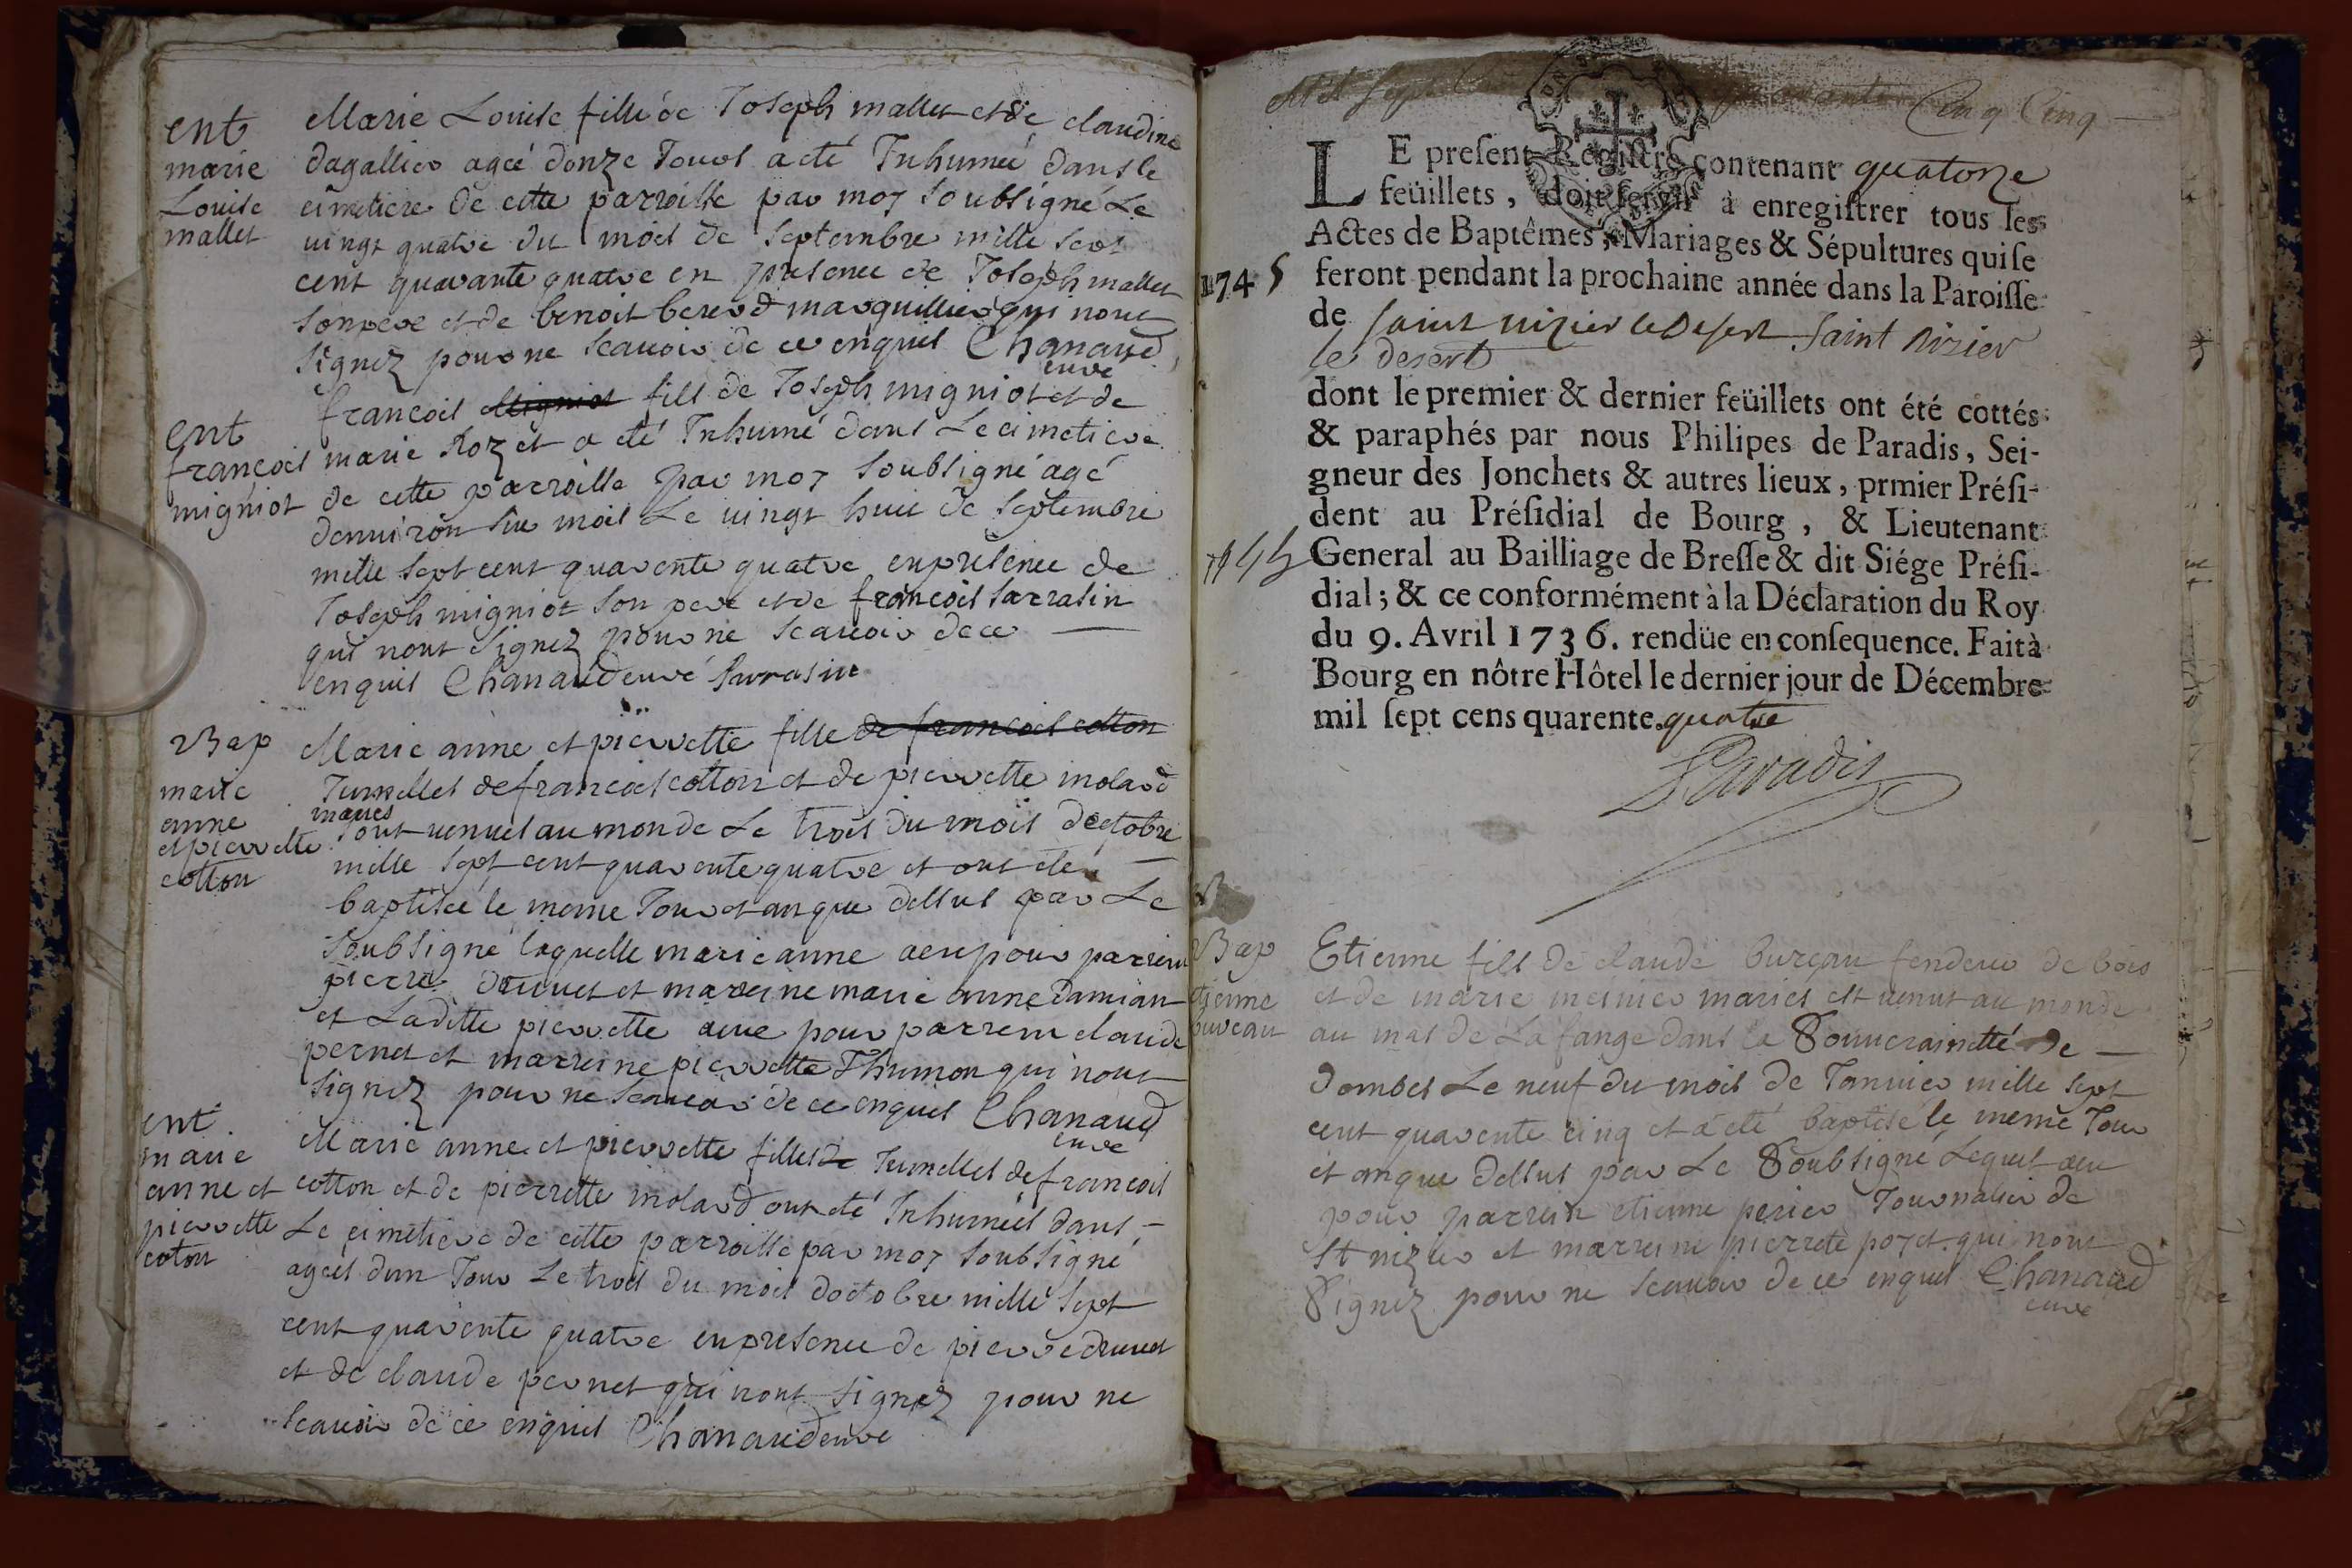 ent
marie
Louise
mallet
Marie Louise fille de Joseph mallet et de claudine
dagallier ageé donze Jours a eté Inhumeé dans le
cimetiere de cette parroisse par moy soubsigné Le
uingt quatre du mois de septembre mille sept
cent quarante quatre en presence de Joseph mallet
son pere et de benoit bererd marguillier qui nont
signez pour ne scauoir de ce enquis Chanaud
curé
ent
francois
migniot
francois Migniot fils de Joseph migniot et de
marie Rozet a eté Inhumé dans Le cimetiere
de cette parroisse par moy soubsigné agé
denuiron six mois Le uingt huit de septembre
mille sept cent quarente quatre en presence de
Joseph migniot son pere et de francois sarrasin
qui nont signez pour ne scauoir de ce
enquis Chanaud curé Sarrasin
Bap
marie
anne
et pierrette
cotton
Marie anne et pierrette fille de francois cotton
Jumelles de francois cotton et de pierrette molard
mariés
sont uenues au monde Le trois du mois doctobre
mille sept cent quarente quatre et ont eté
baptiseé le meme Jour et an que dessus par Le
soubsigné laquelle marie anne a eu pour parrein
pierre druuet et marreine marie anne Damian
et Laditte pierrette a eue pour parrein claude
pernet et marreine pierrette Thumon qui nont
signez pour ne scauoir de ce enquis Chanaud
curé
ent
marie
anne et
pierrette
coton
Marie anne et pierrette filles de Jumelles de francois
cotton et de pierrette molard ont eté Inhumeés dans
Le cimetiere de cette parroisse par moy soubsigné
ageés dun Jour Le trois du mois doctobre mille sept
cent quarente quatre en presence de pierre druuet
et de claude pernet qui nont signez pour ne
scauoir de ce enquis Chanaud curé
Mil sept Cinq Cinq
LE present Registre contenant quatorze
feüillets, doit servir à enregistrer tous les
Actes de Baptêmes, Mariages & Sépultures qui se
1745 feront pendant la prochaine année dans la Paroisse
de saint nizier le Desert Saint Nizier
le desert
dont le premier & dernier feüillets ont été cottés
& paraphés par nous Philipes de Paradis, Sei-
gneur des Jonchets & autres lieux, prmier Prési-
dent au Présidial de Bourg, & Lieutenant
1745 General au Bailliage de Bresse & dit Siége Prési-
dial; & ce conformément à la Déclaration du Roy
du 9. Avril 1736. rendüe en consequence. Fait à
Bourg en nôtre Hôtel le dernier jour de Décembre
mil sept cens quarente. quatre
Paradis
B
Bap
etienne
bureau
Etienne fils de claude bureau fendeur de bois
et de marie mesnier mariés est uenut au monde
au mas de La fange dans la Souueraineté de
dombes Le neuf du mois de Januier mille sept
cent quarente cinq et a eté baptisé le meme Jour
et an que dessus par Le Soubsigné Lequel a eu
pour parrein etienne perier Journalier de
St nizier et marreine pierrete poyet qui nont
Signez pour ne scauoir de ce enquis Chanaud
curé